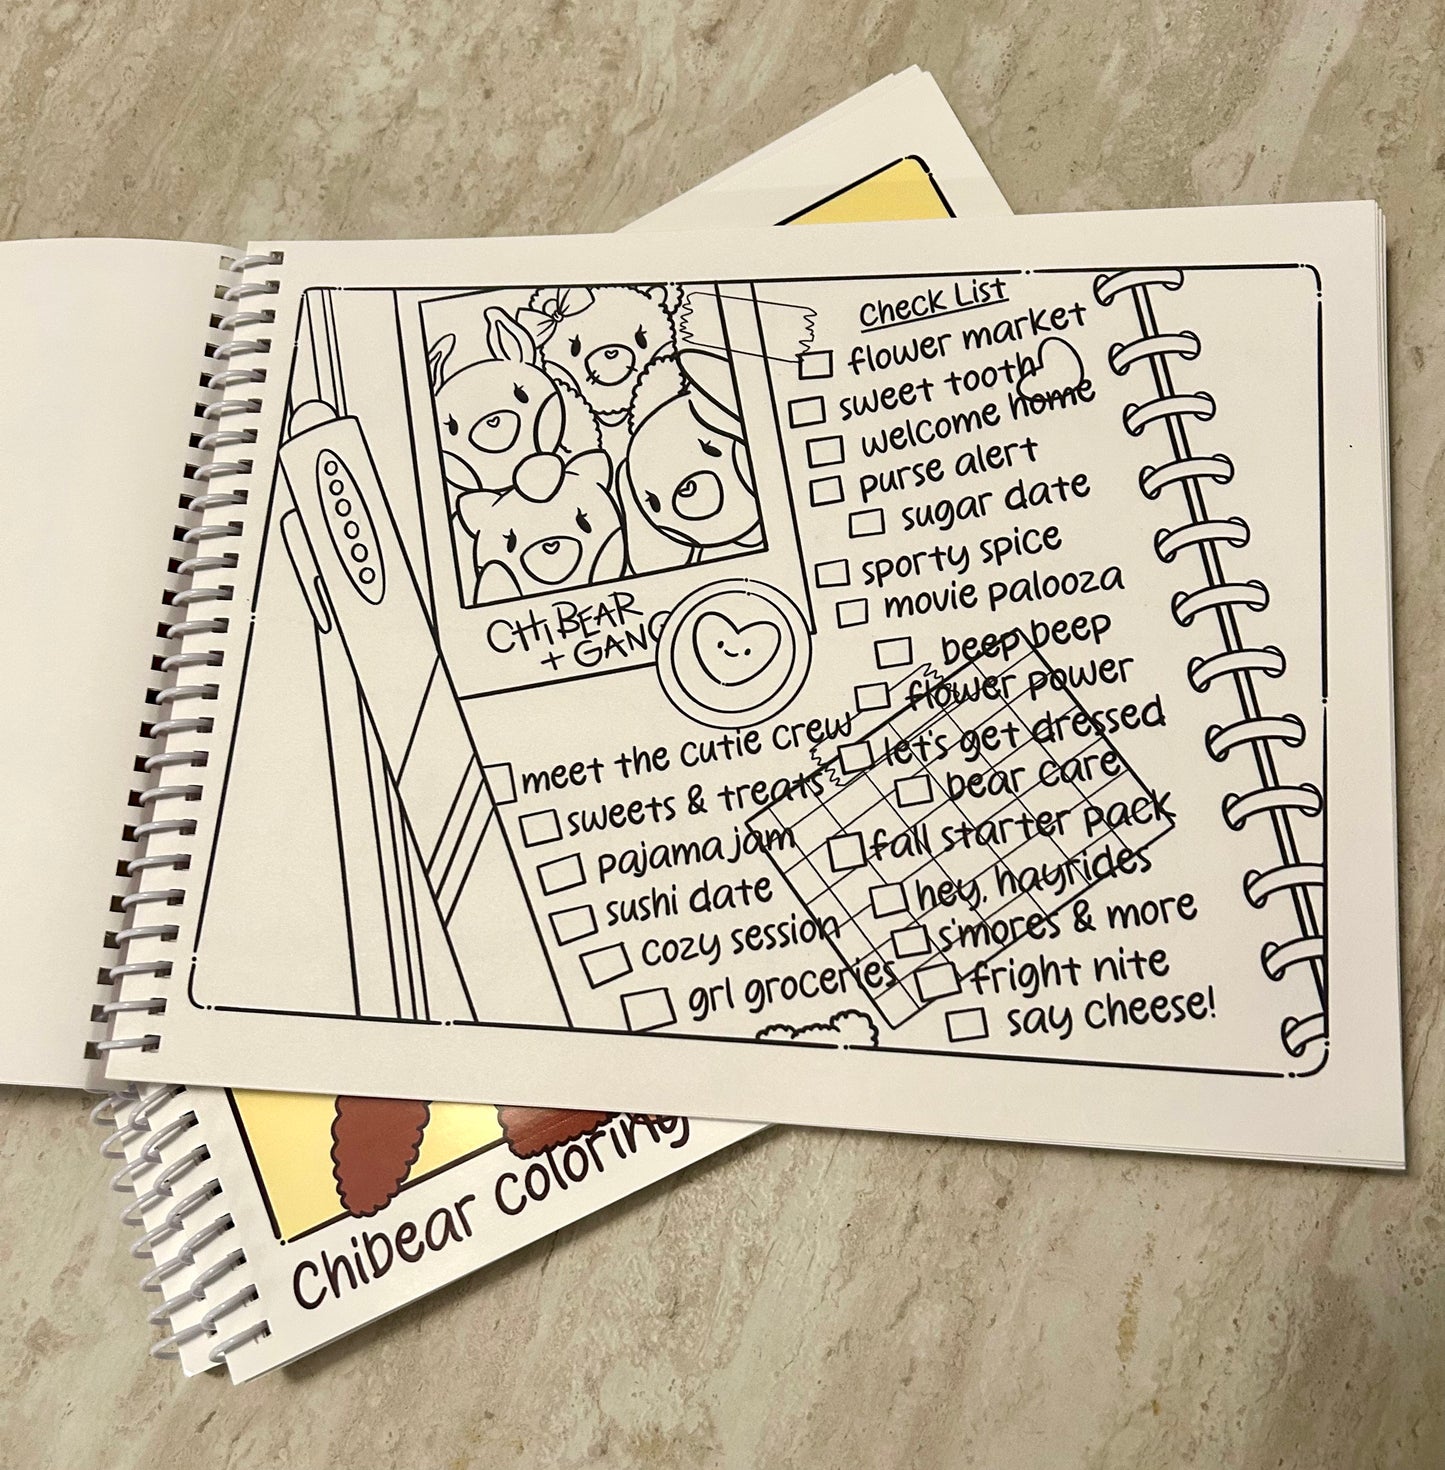 Check List
flower market
sweet tooth
welcome home
purse alert
sugar date
sporty spice
movie palooza
beep beep
flower power
let's get dressed
bear care
fall starter pack
hey, hayrides
s'mores & more
fright nite
say cheese!
CHiBEAR
+ GANG
meet the cutie crew
sweets & treats
pajama jam
sushi date
cozy session
grl groceries
Chibear coloring